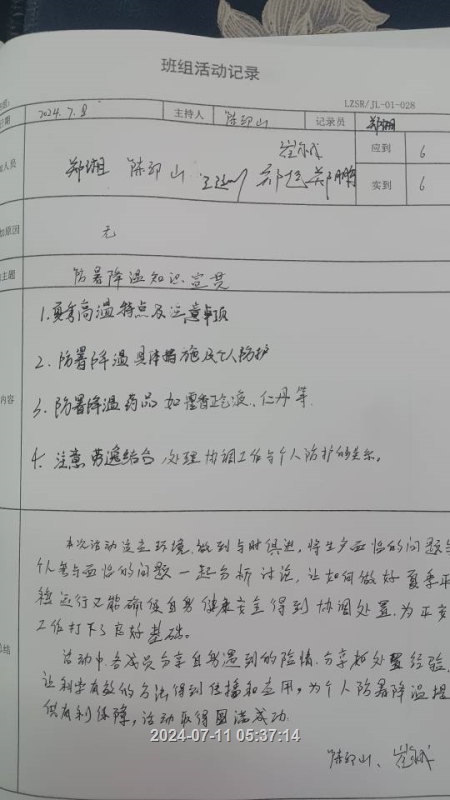 班组活动记录
LZSR/JL-01-028
期 2024.7.8 主持人 陈印山 记录员 郑湘
人员 郑湘 陈印山 应到 6
实到 6
原因 无
主题 防暑降温知识宣贯
1.夏季高温特点及注意事项
2.防暑降温具体措施及个人防护
内容 3.防暑降温药品如藿香正气液、仁丹等
4.注意劳逸结合,处理协调工作与个人防护的关系。
本次活动注重环境,做到与时俱进,将生产面临的问题与
个人参与面临的问题一起分析讨论,让如何做好夏季平
稳运行又能确保自身健康安全得到协调处置,为平安
工作打下了良好基础。
总结
活动中各成员分享自身遇到的险情,分享其处置经验,
让科学有效的方法得到传播和应用,为个人防暑降温提
供有利保障,活动取得圆满成功.
2024-07-11 05:37:14
陈印山、